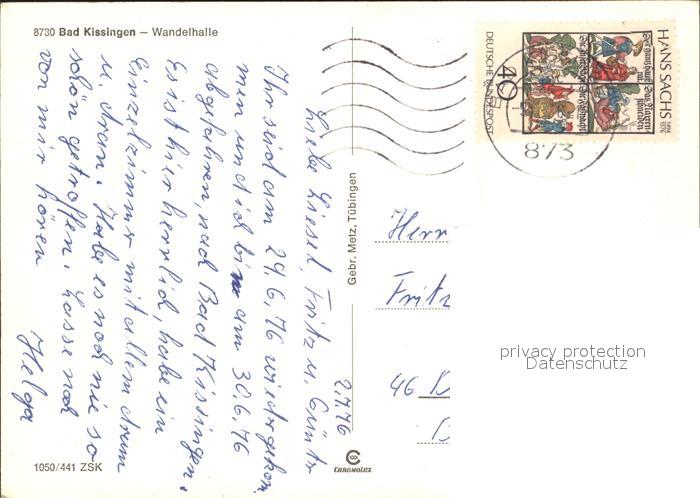 8730 Bad Kissingen – Wandelhalle
2.7.76
Liebe Liesel, Fritz u. Günter
Ihr seid am 29.6.76 wiedergekom
men und ich bin am 30.6.76
abgefahren, nach Bad Kissingen.
Es ist hier herrlich, habe ein
Einzelzimmer mit allem drum
u. dran. Habe es noch nie so
schön getroffen. Lasse noch
von mir hören
Helga
1050/441 ZSK
Gebr. Metz, Tübingen
CHROMOLUX
HANS SACHS
1494 1576
DEUTSCHE BUNDESPOST
40
873
Herr
Fritz
46 D
privacy protection
Datenschutz